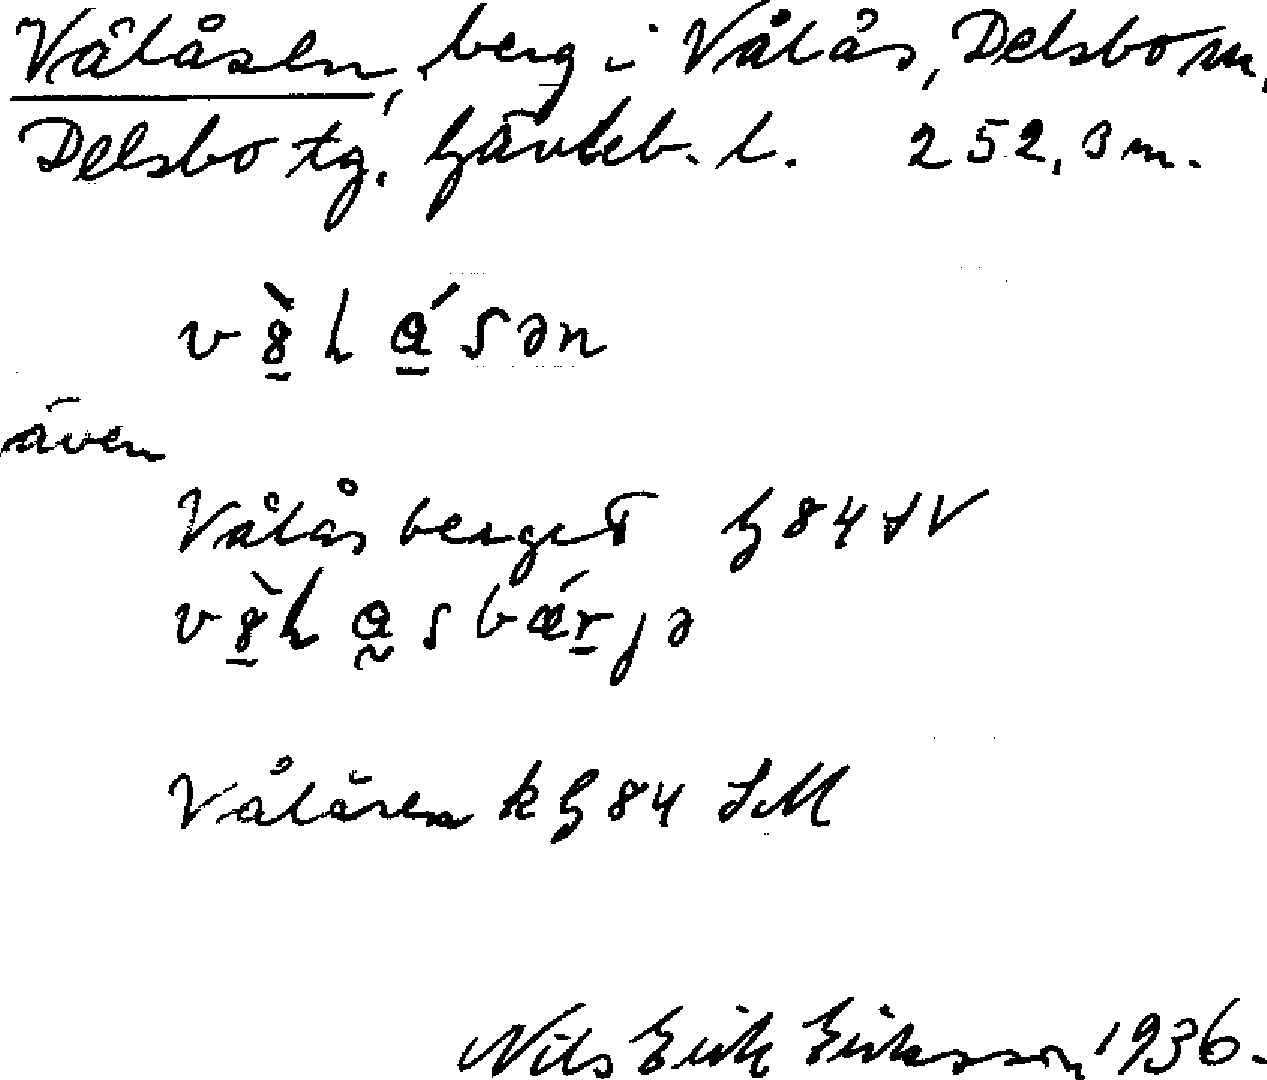 Vålåsen, berg i Vålås, Delsbo sn,
Delsbo tg. Gävleb. l. 252,3 m.
även
Vålåsberget G 84 SV
Vålåsen k G 84
Nils Erik Eriksson 1936.